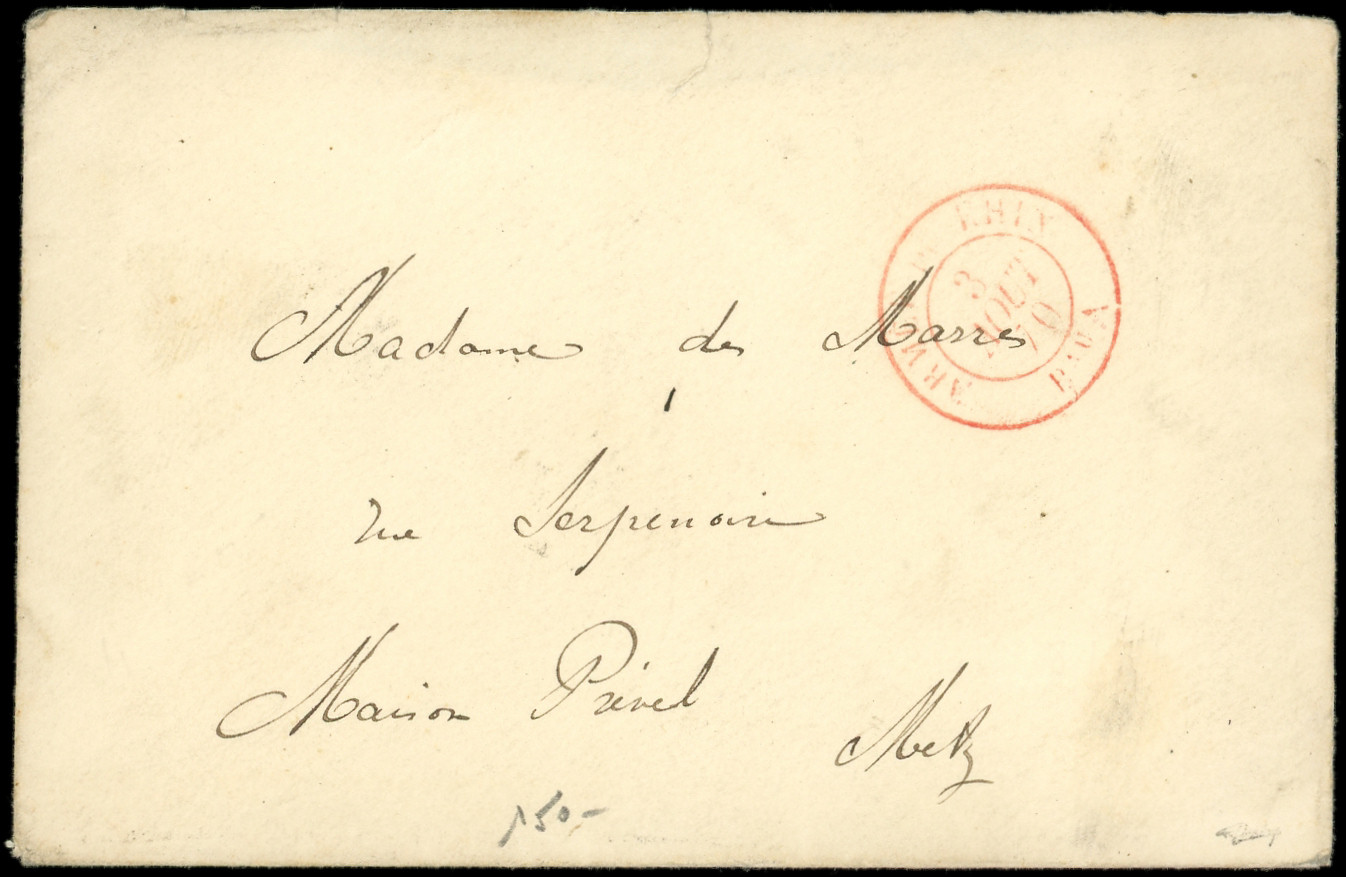 ARMÉE DU RHIN
Bau A
3
AOUT
70
Madame des Marres
rue Serpenoise
Maison Prével
Metz
150-